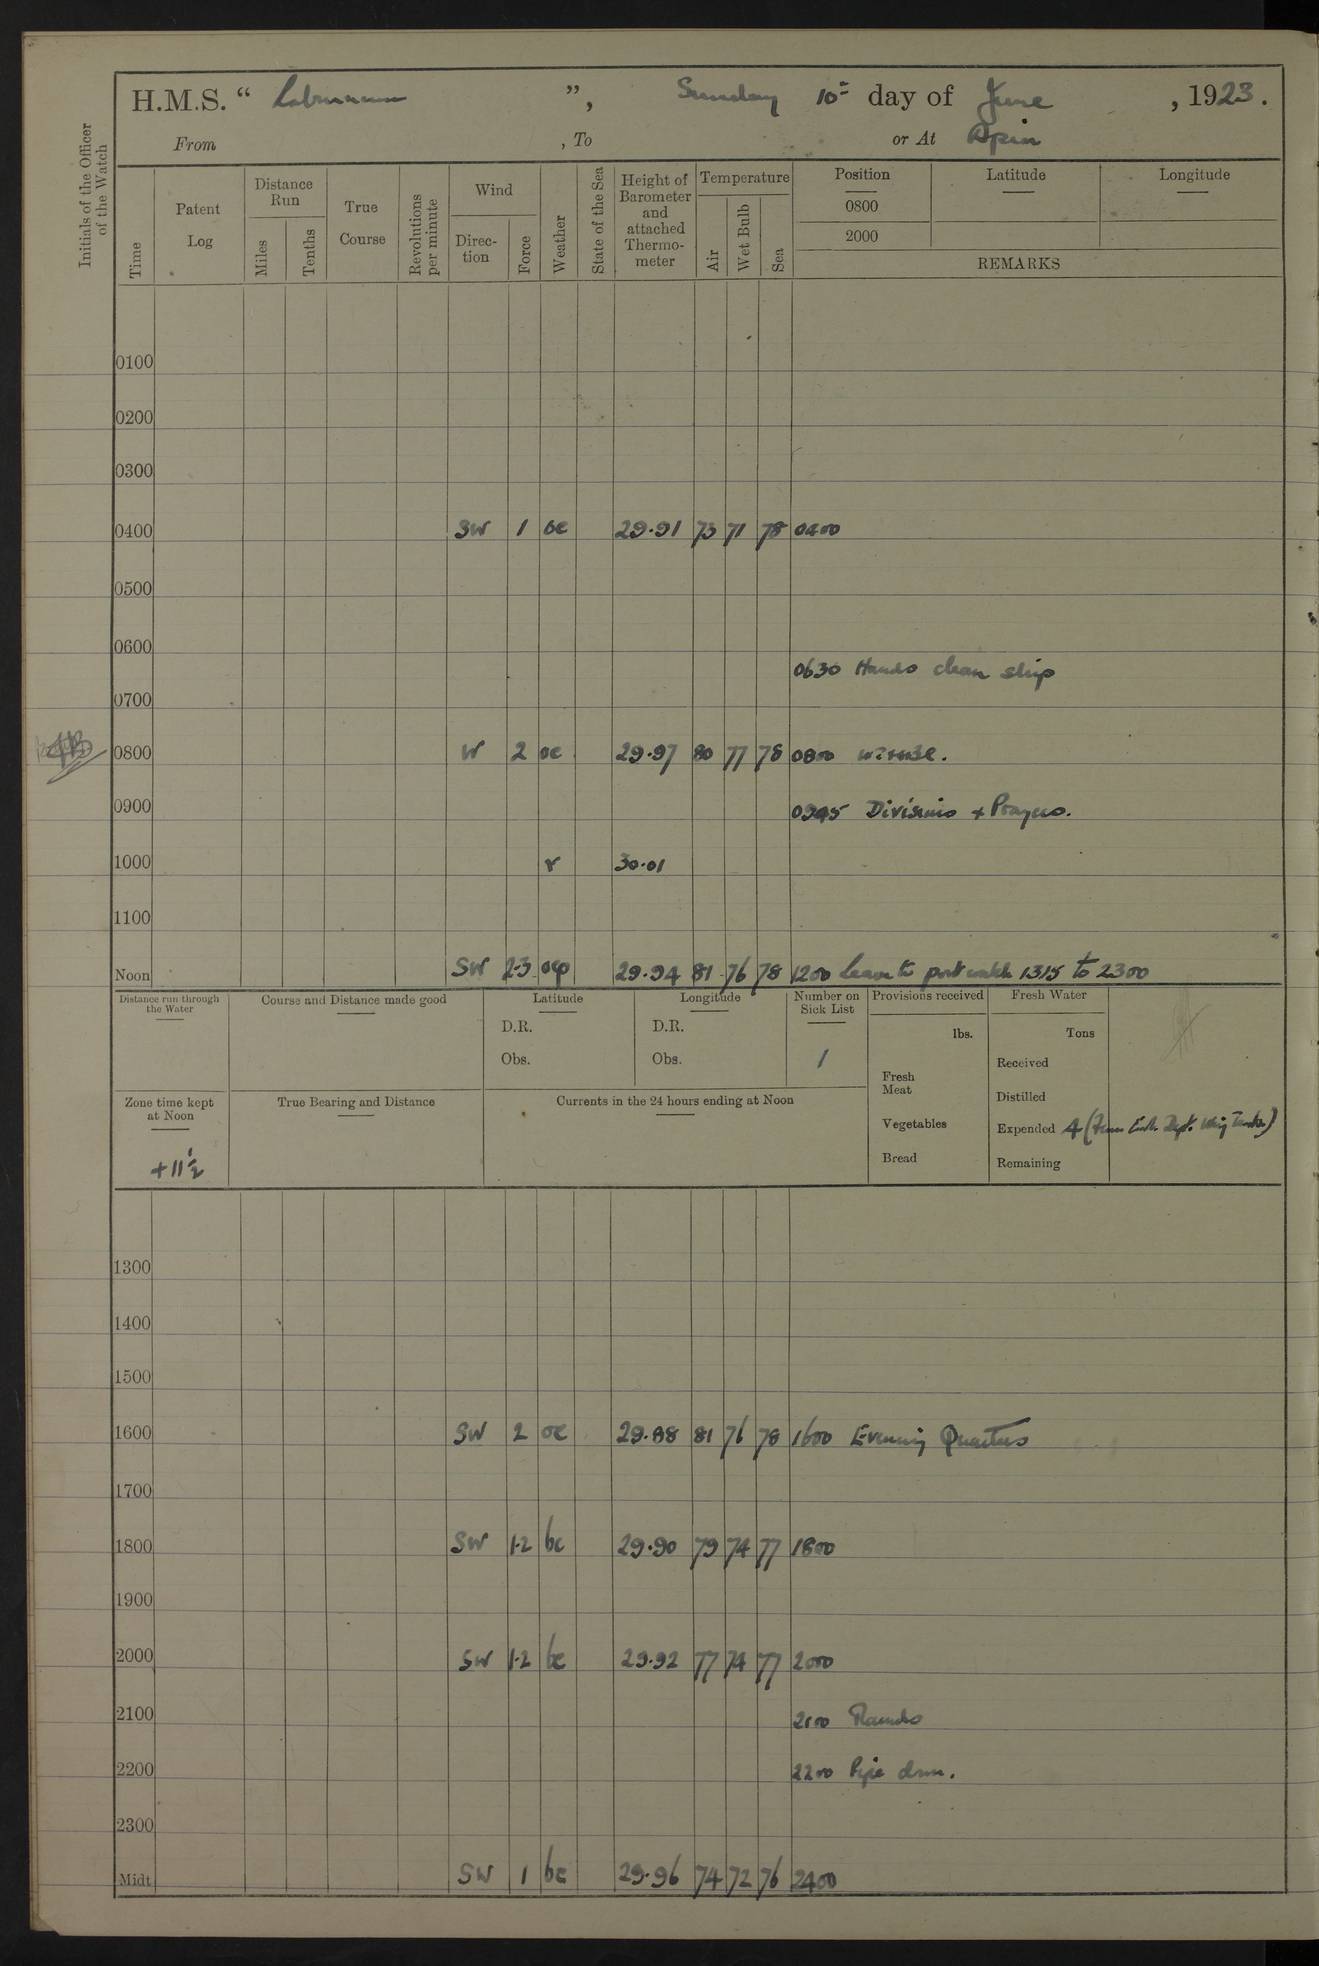 H.M.S. “ Laburnum ”, Sunday 10th day of June , 1923.
From , To or At Apia
Initials of the Officer of the Watch
Time
Patent Log
Distance Run
Miles
Tenths
True Course
Revolutions per minute
Wind
Direc-tion
Force
Weather
State of the Sea
Height of Barometer and attached Thermo-meter
Temperature
Air
Wet Bulb
Sea
Position
0800
2000
Latitude
Longitude
REMARKS
0100
0200
0300
0400 SW 1 oc 29.91 73 71 78 0400
0500
0600
0630 Hands clean ship
0700
0800 W 2 oc 29.97 80 77 78 0800
0900
0945 Divisions + Prayers.
1000 r 30.01
1100
Noon SW 2-3 ocp 29.94 81 76 78 1200 Leave to port watch 1315 to 2300
Distance run through the Water
Course and Distance made good
Latitude
D.R.
Obs.
Longitude
D.R.
Obs.
Number on Sick List
1
Provisions received
lbs.
Fresh Meat
Vegetables
Bread
Fresh Water
Tons
Received
Distilled
Expended 4 (From Dept. Tanks)
Remaining
Zone time kept at Noon
+11½
True Bearing and Distance
Currents in the 24 hours ending at Noon
1300
1400
1500
1600 SW 2 oc 29.88 81 76 78 1600 Evening Quarters
1700
1800 SW 1-2 bc 29.90 79 74 77 1800
1900
2000 SW 1-2 bc 29.92 77 74 77 2000
2100 2100 Rounds
2200 2200 Pipe down.
2300
Midt. SW 1 bc 29.96 74 72 76 2400